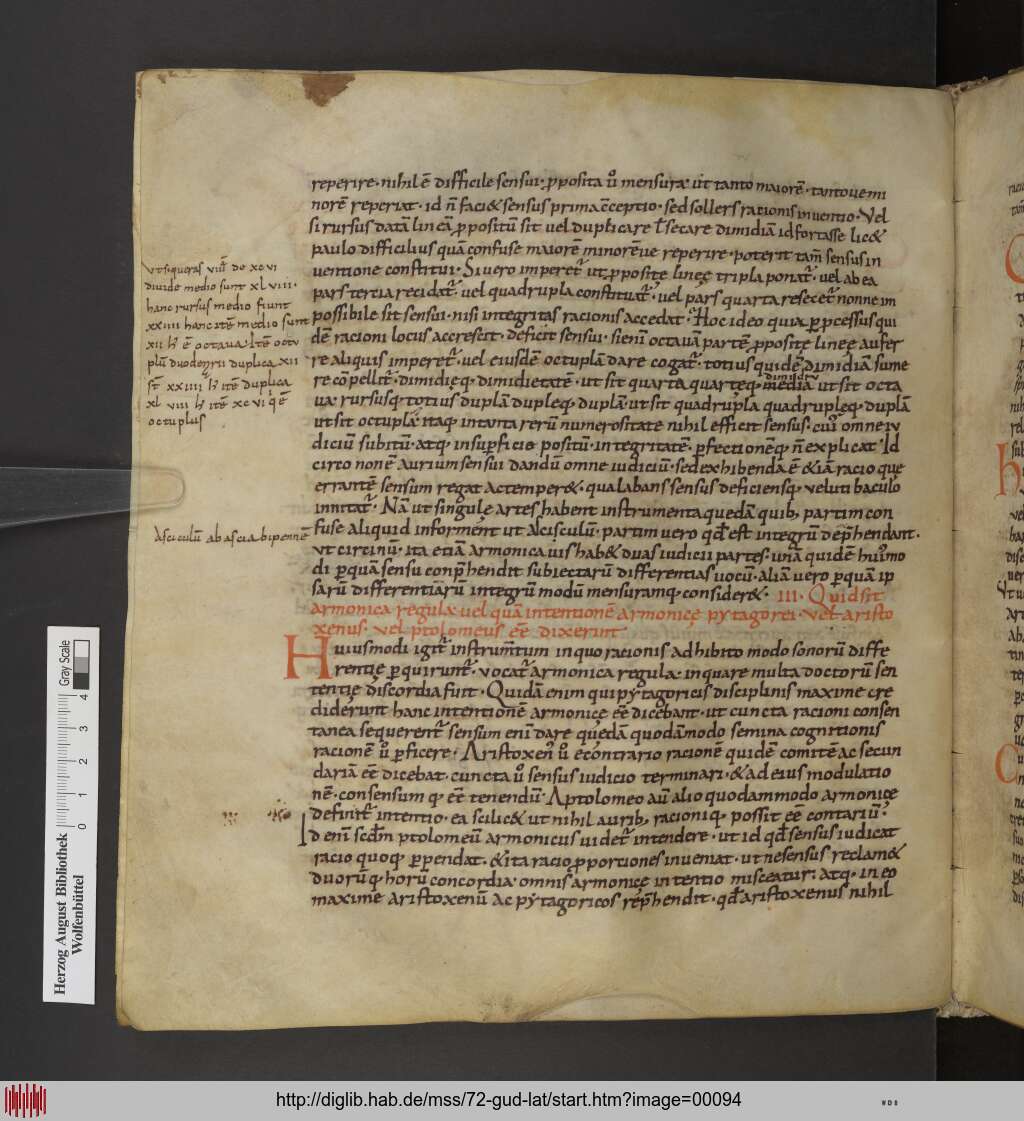 reperire· nihil ē difficile sensui· ꝓposita ů mensura ut tanto maiorē· tanto ue mi
norē reperiat· id n̄ faci& sensus prima c̄ceptio· sed sollers rationis inuentio· Vel
si rursus datā lineā ꝓpositū sit uel duplicare ł secare dimidiā id fortasse lic&
paulo difficilius quā confuse maiorē minorēue reperire· poterit tam̄ sensus in
uentione constitui· Si uero imperet᷑ ut ꝓposite lineę tripla ponat᷑· uel ab ea
pars tertia recidat᷑· uel quadrupla constituat᷑· uel pars quarta resecet᷑ nonne im
possibile sit sensui· nisi integritas racionis accedat· Hoc ideo quia ꝑ ꝓcessus qui
dē racioni locus accrescit· deficit sensui· si enī octauā partē ꝓposite lineę aufer
re aliquis imperet᷑· uel eiusdē octuplā dare cogat᷑· totius quidē dimidiā sume
re cōpellit᷑· dimidięq· dimidietatē· ut sit quarta quarteq· mediā ut sit octa
dimidiū
ua· rursusq· totius duplā dupleq· duplā ut sit quadrupla quadrupleq· duplā
ut sit octupla· itaq· in tanta rerū numerositate nihil efficit sensus· cui᷒ omne iu
diciū subitū· atq· insuꝑficie positū· integritatē· ꝑfectionēq· n̄ explicat· Id
circo non ē aurium sensui dandū omne iudiciū· sed exhibenda ē & iā racio que
errantē sensum regat ac temper&· qua labans sensus deficiensq· veluti baculo
innitat᷑· Nā ut singule artes habent instrumenta quedā quib; partim con
fuse aliquid informent ut asciculū· partim uero qd̄ est integrū depħendant·
vt circinū· ita etiā armonica uis hab& duas iudicii partes· unā quidē hui᷒mo
di ꝑ quā sensu conpħendit subiectarū differentias uocū· aliā uero ꝑ quā ip
sarū differentiarū integrū modū mensuramq· consider&· III· Quid sit
armonica regula uel quā intentionē armonicę pytagorei· vel aristo
xenus· vel ptolomeus eē̄ dixerint
Huiusmodi igit᷑ instrum̄tum in quo racionis adhibito modo sonorū diffe
rentię ꝑquirunt᷑· vocat᷑ armonica regula· in qua re multa doctorū sen
tentię discordia fuit· Quidā enim qui pytagoricis disciplinis maxime cre
diderunt hanc intentionē armonicę eē̄ dicebant· ut cuncta racioni consen
tanea sequerent᷑ sensum eni dare quedā quodāmodo semina cognitionis
racionē ů ꝑficere· Aristoxen᷒ ů econtrario racionē quidē comitē ac secun
dariā eē̄ dicebat· cuncta ů sensus iudicio terminari· & ad eius modulatio
nē· consensum q· eē̄ tenendū· A ptolomeo aū alio quodammodo armonicę
definit᷑ intentio· ea scilic& ut nihil aurib; racioniq· possit eē̄ contrariū·
Id enī scd̄m ptolomeū armonicus uidet᷑ intendere· ut id qd̄ sensus iudicat
racio quoq· ꝑpendat· & ita racio ꝓportiones inueniat· ut ne sensus reclam&
duorū q· horū concordia omnis armonicę intentio misceatur· atq· in eo
maxime aristoxenū ac pytagoricos repħendit· qd̄ aristoxenus nihil
Vt si queras viii de xc vi
diuide medio sunt xl viii·
hanc rursus medio fiunt
xxiiii hanc itē medio sunt
xii h̄ ē octaua· Itē octu
plū duodenarii duplica xii
st̄ xxiiii h̄ itē duplica
xl viii h̄ itē xc vi q̄ ē
octuplus
Asciculū ab ascia bipennē
Herzog August Bibliothek
Wolfenbüttel
Gray Scale
0 1 2 3 4
http://diglib.hab.de/mss/72-gud-lat/start.htm?image=00094